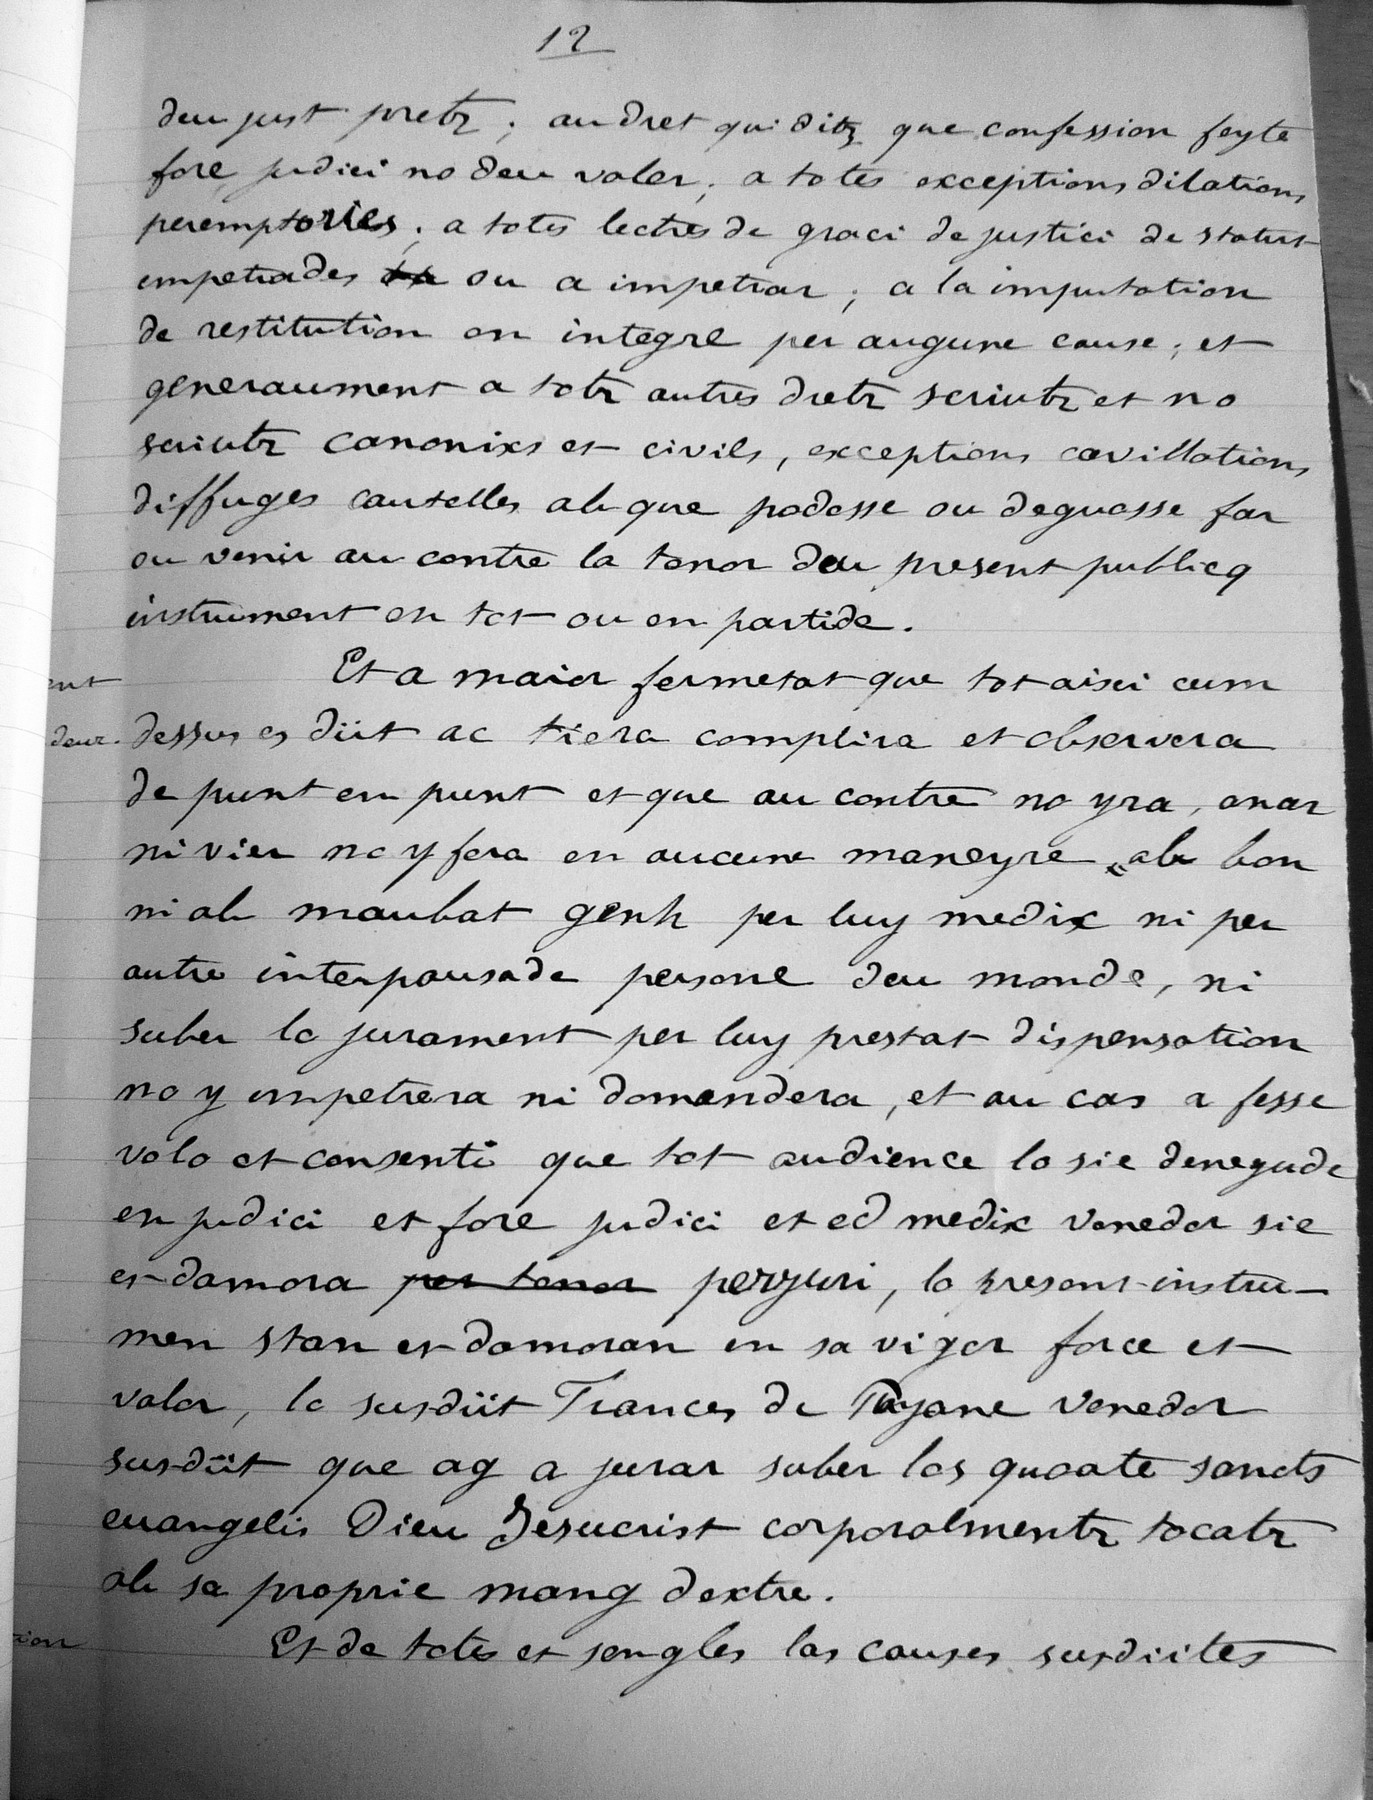 12
deu just pretz ; au dret qui ditz que confession feyte
fore judici no deu valer ; a totes exceptions dilations
peremptories ; a totes lectres de graci de justici de statut
empetrades ou a impetrar ; a la imputation
de restitution en integre per augune cause ; et
generaument a totz autres dretz scriutz et no
scriutz canonixs et civils, exceptions cavillations
diffuges cautelles ab que podosse ou deguosse far
ou venir au contre la tenor deu present publicq
instrument en tot ou en partide.
Et a maior fermetat que tot aisci cum
ent
dessus es diit ac tiera complira et observera
deur.
de punt en punt et que au contre no yra, anar
ni vier no y fera en aucune maneyre, ab bon
ni ab maubat genh per luy medix ni per
autre interpausade persone deu monde, ni
suber lo jurament per luy prestat dispensation
no y empetrera ni demandera, et au cas a fesse
volo et consenti que tot audience lo sie denegude
en judici et fore judici et ed medix venedor sie
et damora per tenor perjuri, lo present instru-
men stan et damoran en sa vigor force et
valor, lo susdiit Frances de Tayane venedor
susdiit que ag a jurar suber los quoate sancts
euangelis Dieu Jesucrist corporalmentz tocatz
ab sa proprie mang dextre.
tion
Et de totes et sengles las causes susdiites